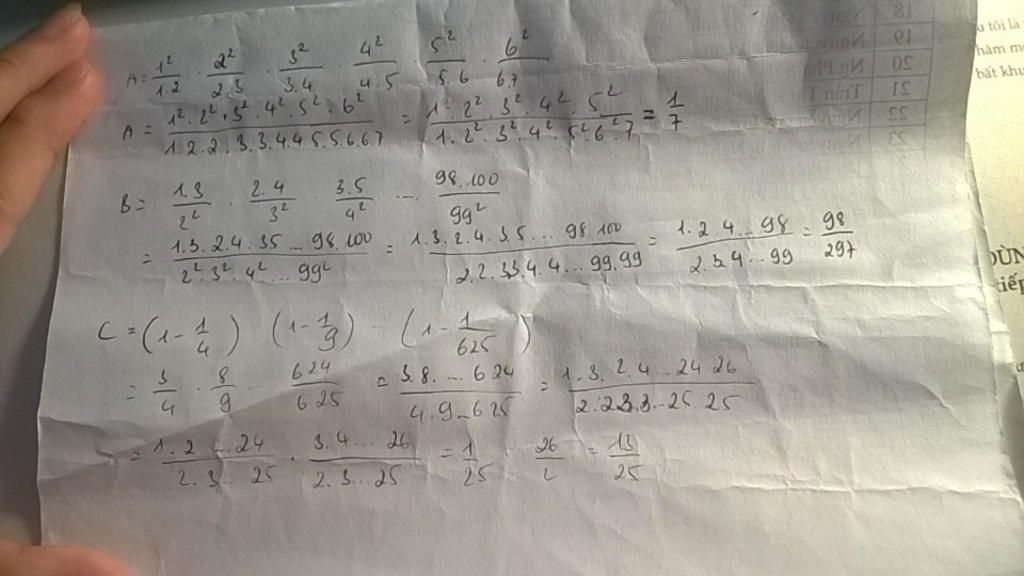 A = 1²/1.2 . 2²/2.3 . 3²/3.4 . 4²/4.5 . 5²/5.6 . 6²/6.7
A = 1².2².3².4².5².6²/1.2.2.3.3.4.4.5.5.6.6.7 = 1².2².3².4².5²/1.2².3².4².5².6².7 = 1/7
B = 1.3/2² . 2.4/3² . 3.5/4² ... 98.100/99²
= 1.3.2.4.35...98.100/2².3².4²...99² = 1.3.2.4.3.5...98.100/2.2.3.3.4.4...99.99 = 1.2.4...98/2.3.4...99 = 98/297
C = (1-1/4) (1-1/9) ... (1-1/625)
= 3/4 . 8/9 ... 624/625 = 3.8....624/4.9...625 = 1.3.2.4...24.26/2.2.3.3...25.25
= 1.2...24/2.3...25 . 3.4...26/2.3...25 = 1/25 . 26/2 = 13/25
18
19
20
21
22
23
u tôi là
bất khu